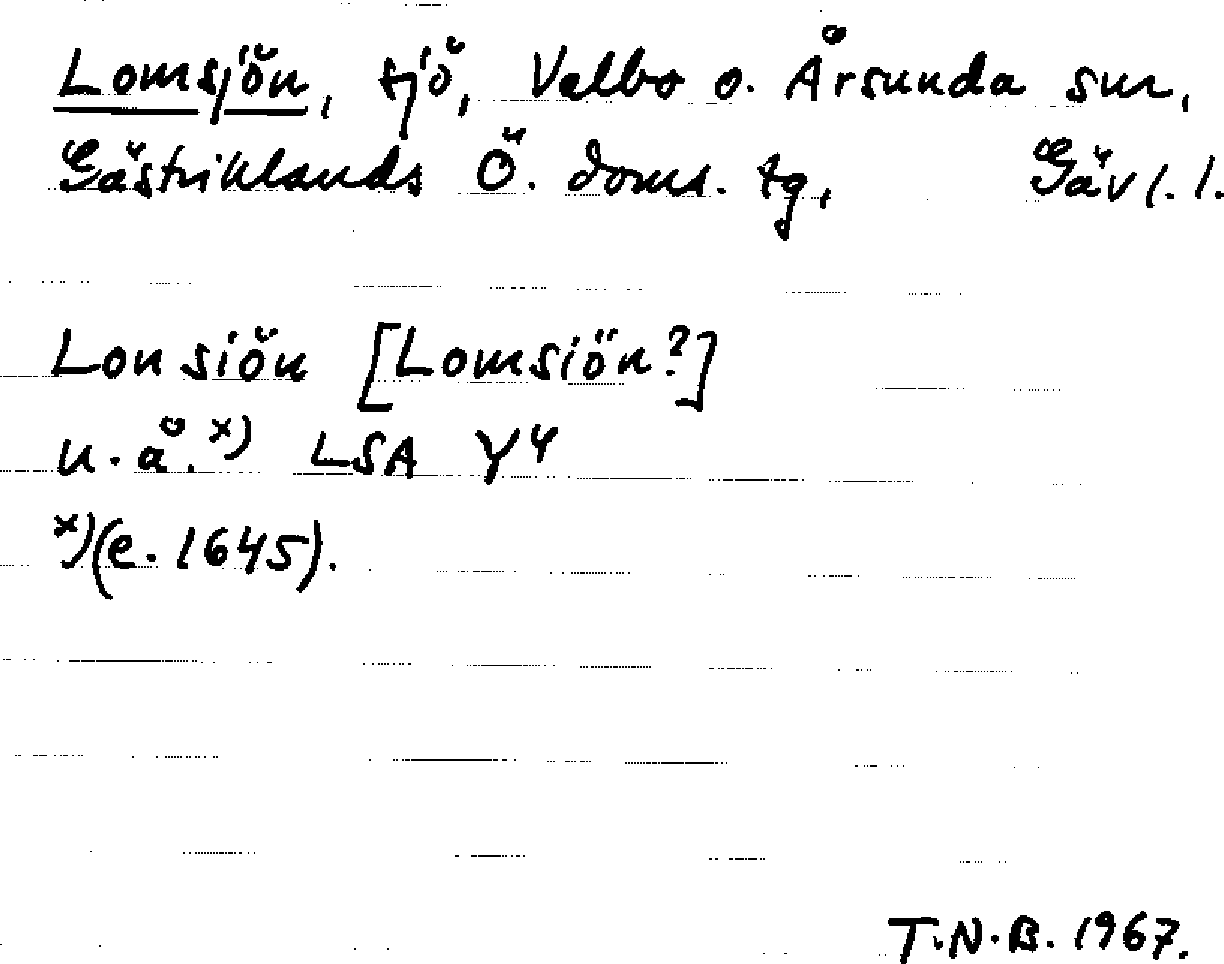 Lomsjön, sjö, Valbo o. Årsunda snr,
Gästriklands Ö. doms. tg, Gävl. l.
Lonsiön [Lomsiön?]
u. å. x) LSA Y4
x) (e. 1645).
T.N.B. 1967.